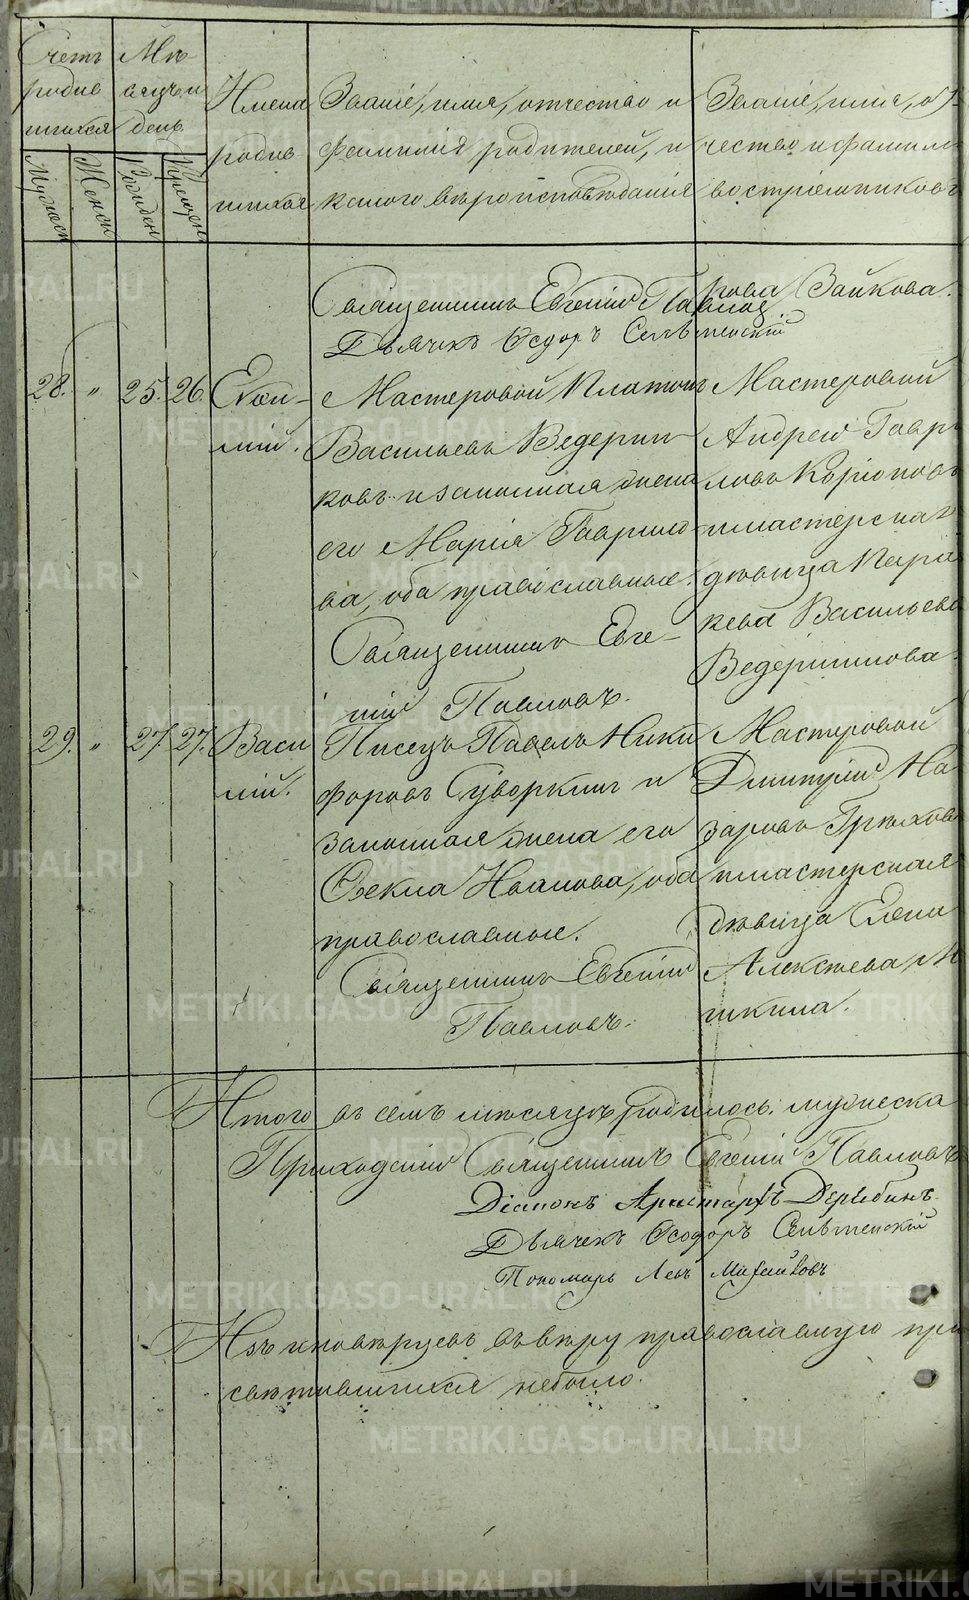 Счетъ родившихся
Мѣсяцъ и день.
Мужеск
Женск
Рожден
Крещен
Имена родившихся
Званіе, имя, отчество и
фамилія родителей, и
какого вѣроисповѣданія
Званіе, имя, от-
чество и фамилія
воспріемниковъ
Священникъ Евгеній Павловъ
Дьячекъ Ѳедоръ Сельменскій
Зайкова.
28. " 25. 26. Евѳи-
мій.
Мастеровой Платонъ
Васильевъ Ведерни
ковъ и законная жена
его Марія Гаврило
ва, оба православные.
Священникъ Евге-
ній Павловъ.
Мастеровой
Андрей Гаври
ловъ
и мастерская
дѣвица Параске
кева Васильева
Ведерникова.
29. " 27. 27. Васи
лій.
Писецъ Павелъ Ники
форовъ Суворкинъ и
законная жена его
Ѳекла Иванова, оба
православные.
Священникъ Евгеній
Павловъ.
Мастеровой
Дмитрій На
заровъ Грѣховъ
и мастерская
дѣвица Елена
Алексѣева
шкина.
Итого въ семъ мѣсяцѣ родилось: мужеска
Приходскій Священникъ Евгеній Павловъ
Діаконъ Аристархъ Дерябинъ.
Дьячекъ Ѳеодоръ Сельменскій
Пономарь Левъ
Изъ иновѣрцевъ въ вѣру православную при
соединившихся небыло.
METRIKI.GASO-URAL.RU